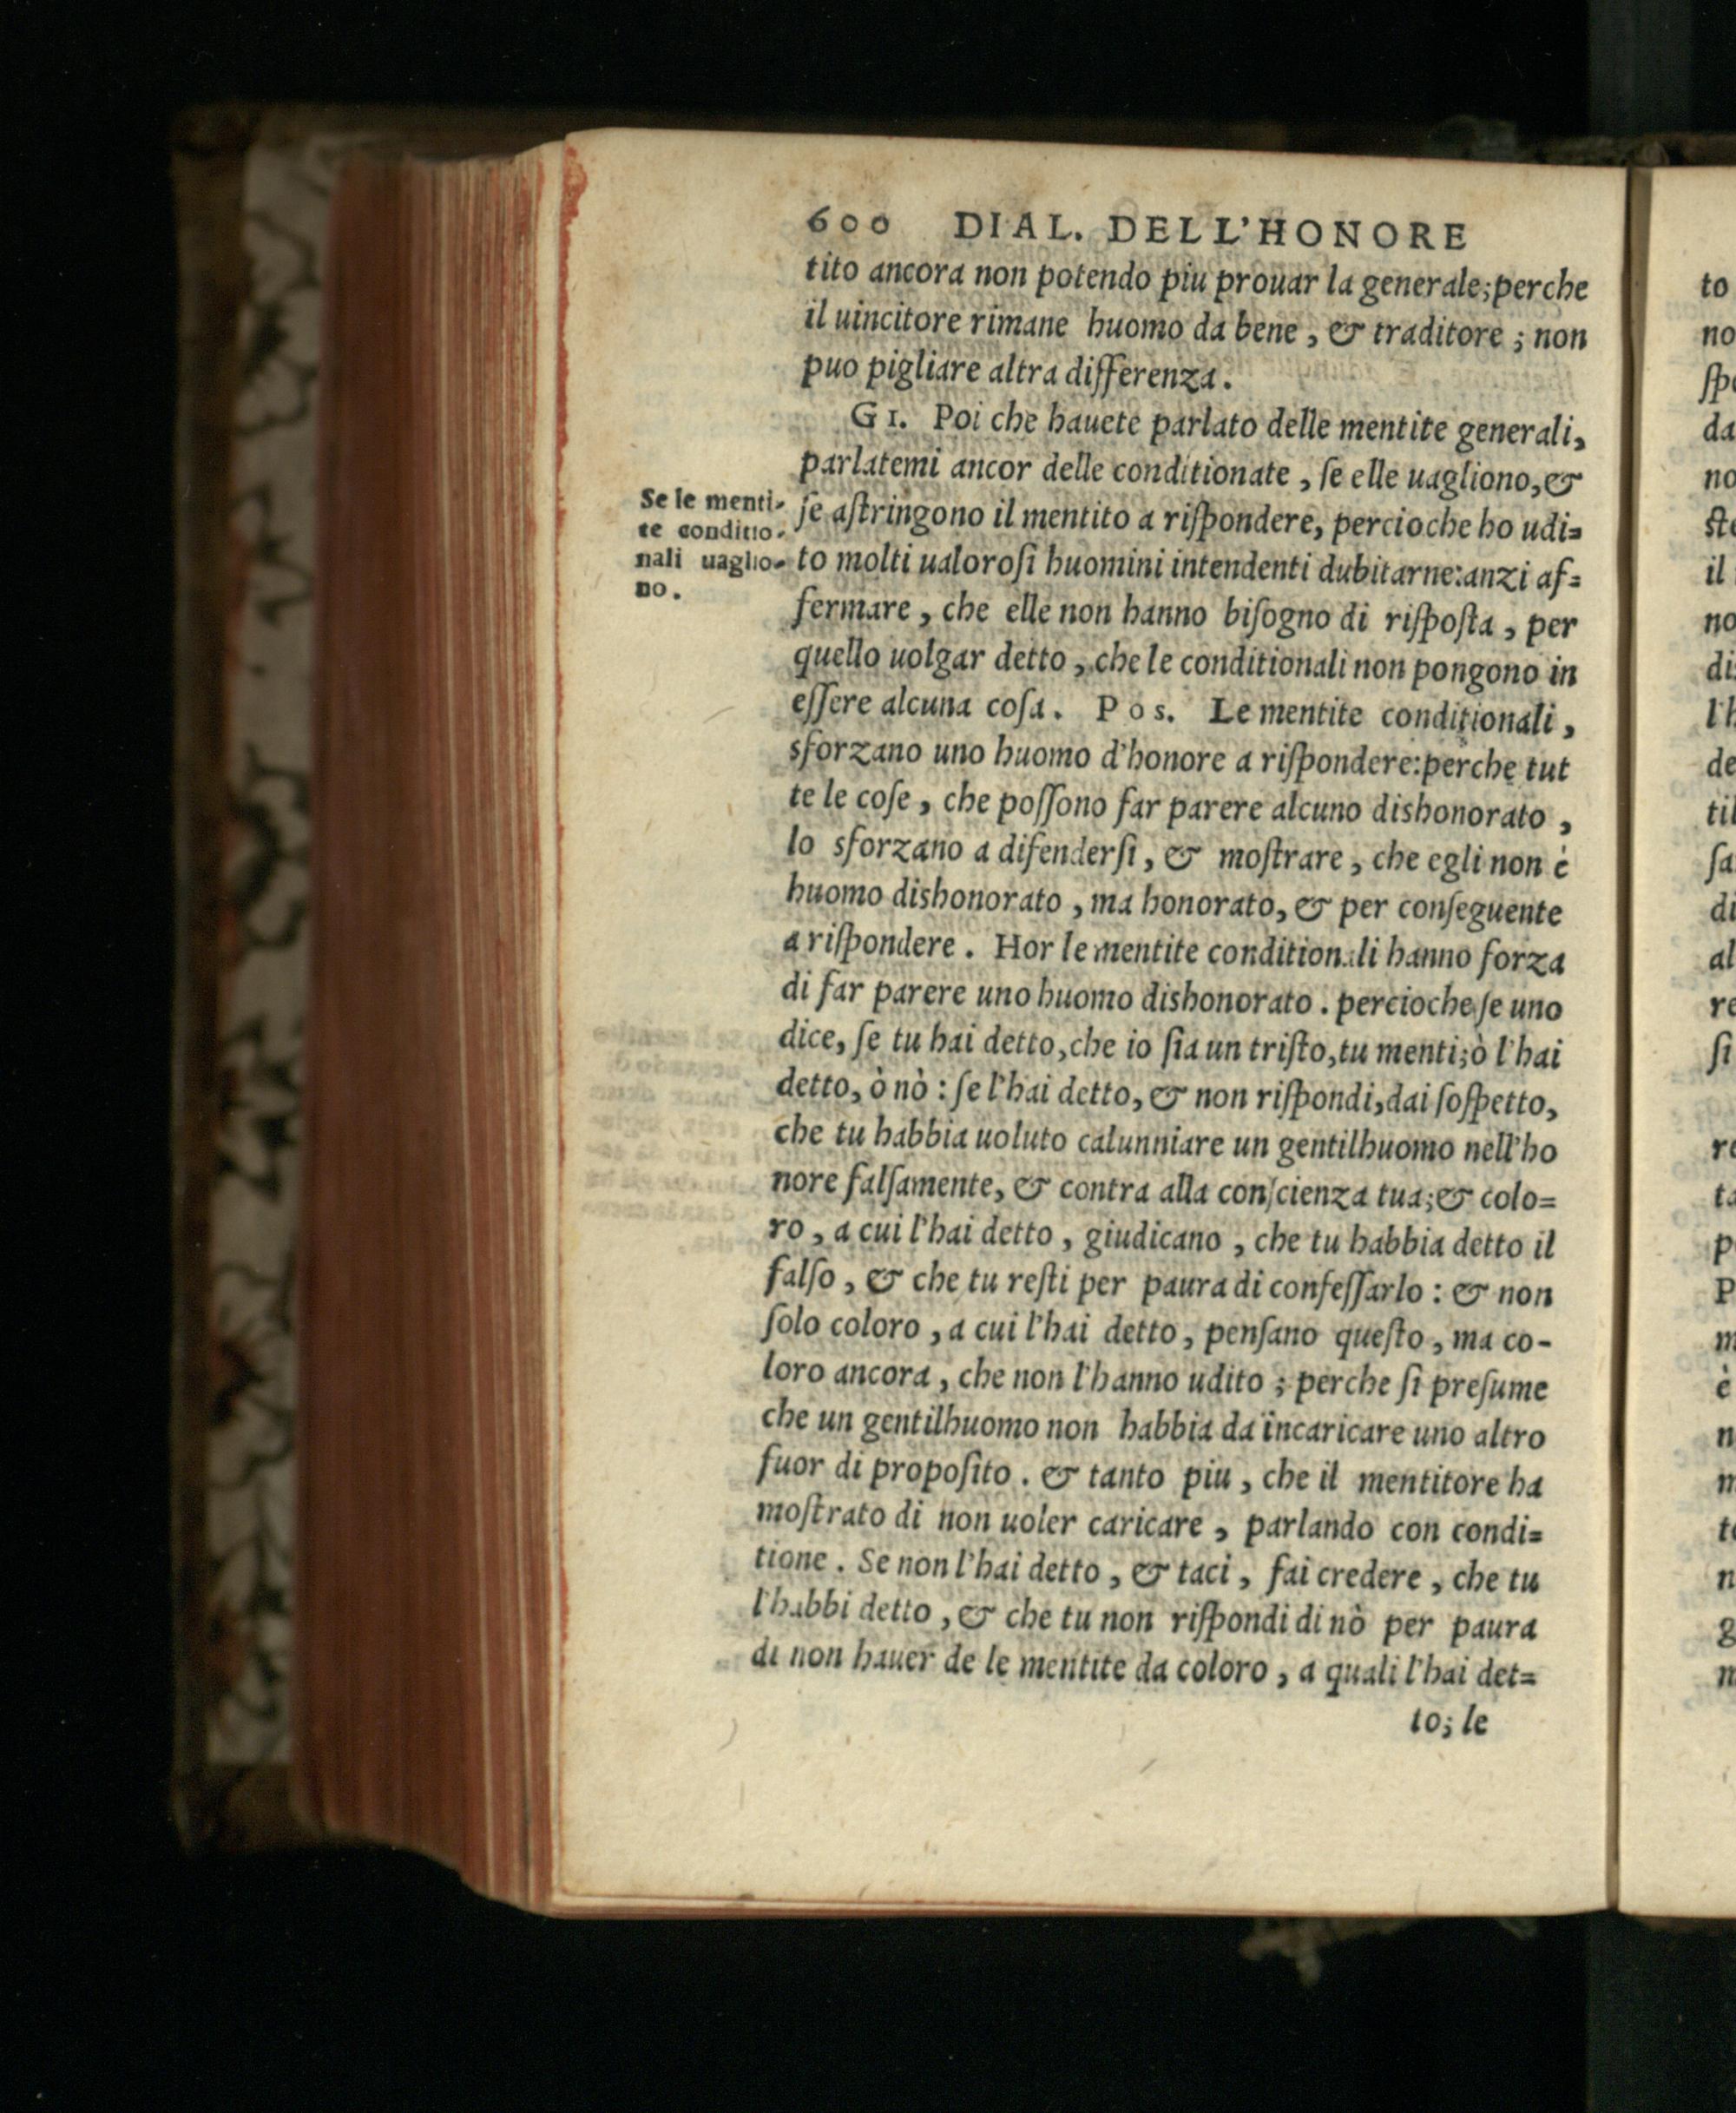 600 DIAL. DELL'HONORE
tito ancora non potendo piu prouar la generale;perche
il uincitore rimane huomo da bene, & traditore; non
puo pigliare altra differenza.
GI. Poi che hauete parlato delle mentite generali,
parlatemi ancor delle conditionate, ſe elle uagliono,&
Se le menti-
te conditio-
nali uaglio-
no.
ſe aſtringono il mentito a riſpondere, percioche ho udi=
to molti ualoroſi huomini intendenti dubitarne:anzi af=
fermare, che elle non hanno biſogno di riſpoſta, per
quello uolgar detto, che le conditionali non pongono in
eſſere alcuna coſa. Pos. Le mentite conditionali,
sforzano uno huomo d'honore a riſpondere:perche tut
te le coſe, che poſſono far parere alcuno dishonorato,
lo sforzano a difenderſi, & moſtrare, che egli non è
huomo dishonorato, ma honorato, & per conſeguente
a riſpondere. Hor le mentite conditionali hanno forza
di far parere uno huomo dishonorato. percioche ſe uno
dice, ſe tu hai detto,che io ſia un triſto,tu menti;ò l'hai
detto, ò nò: ſe l'hai detto, & non riſpondi,dai ſoſpetto,
che tu habbia uoluto calunniare un gentilhuomo nell'ho
nore falſamente, & contra alla conſcienza tua;& colo=
ro, a cui l'hai detto, giudicano, che tu habbia detto il
falſo, & che tu reſti per paura di confeſſarlo: & non
ſolo coloro, a cui l'hai detto, penſano queſto, ma co-
loro ancora, che non l'hanno udito; perche ſi preſume
che un gentilhuomo non habbia da incaricare uno altro
fuor di propoſito. & tanto piu, che il mentitore ha
moſtrato di non uoler caricare, parlando con condi=
tione. Se non l'hai detto, & taci, fai credere, che tu
l'habbi detto, & che tu non riſpondi di nò per paura
di non hauer de le mentite da coloro, a quali l'hai det=
to; le
to
no
ſpe
da
no
ſte
il
no
di
l'h
de
til
ſa
di
al
re
ſi
re
ta
p
P
m
è
n
m
to
n
g
m